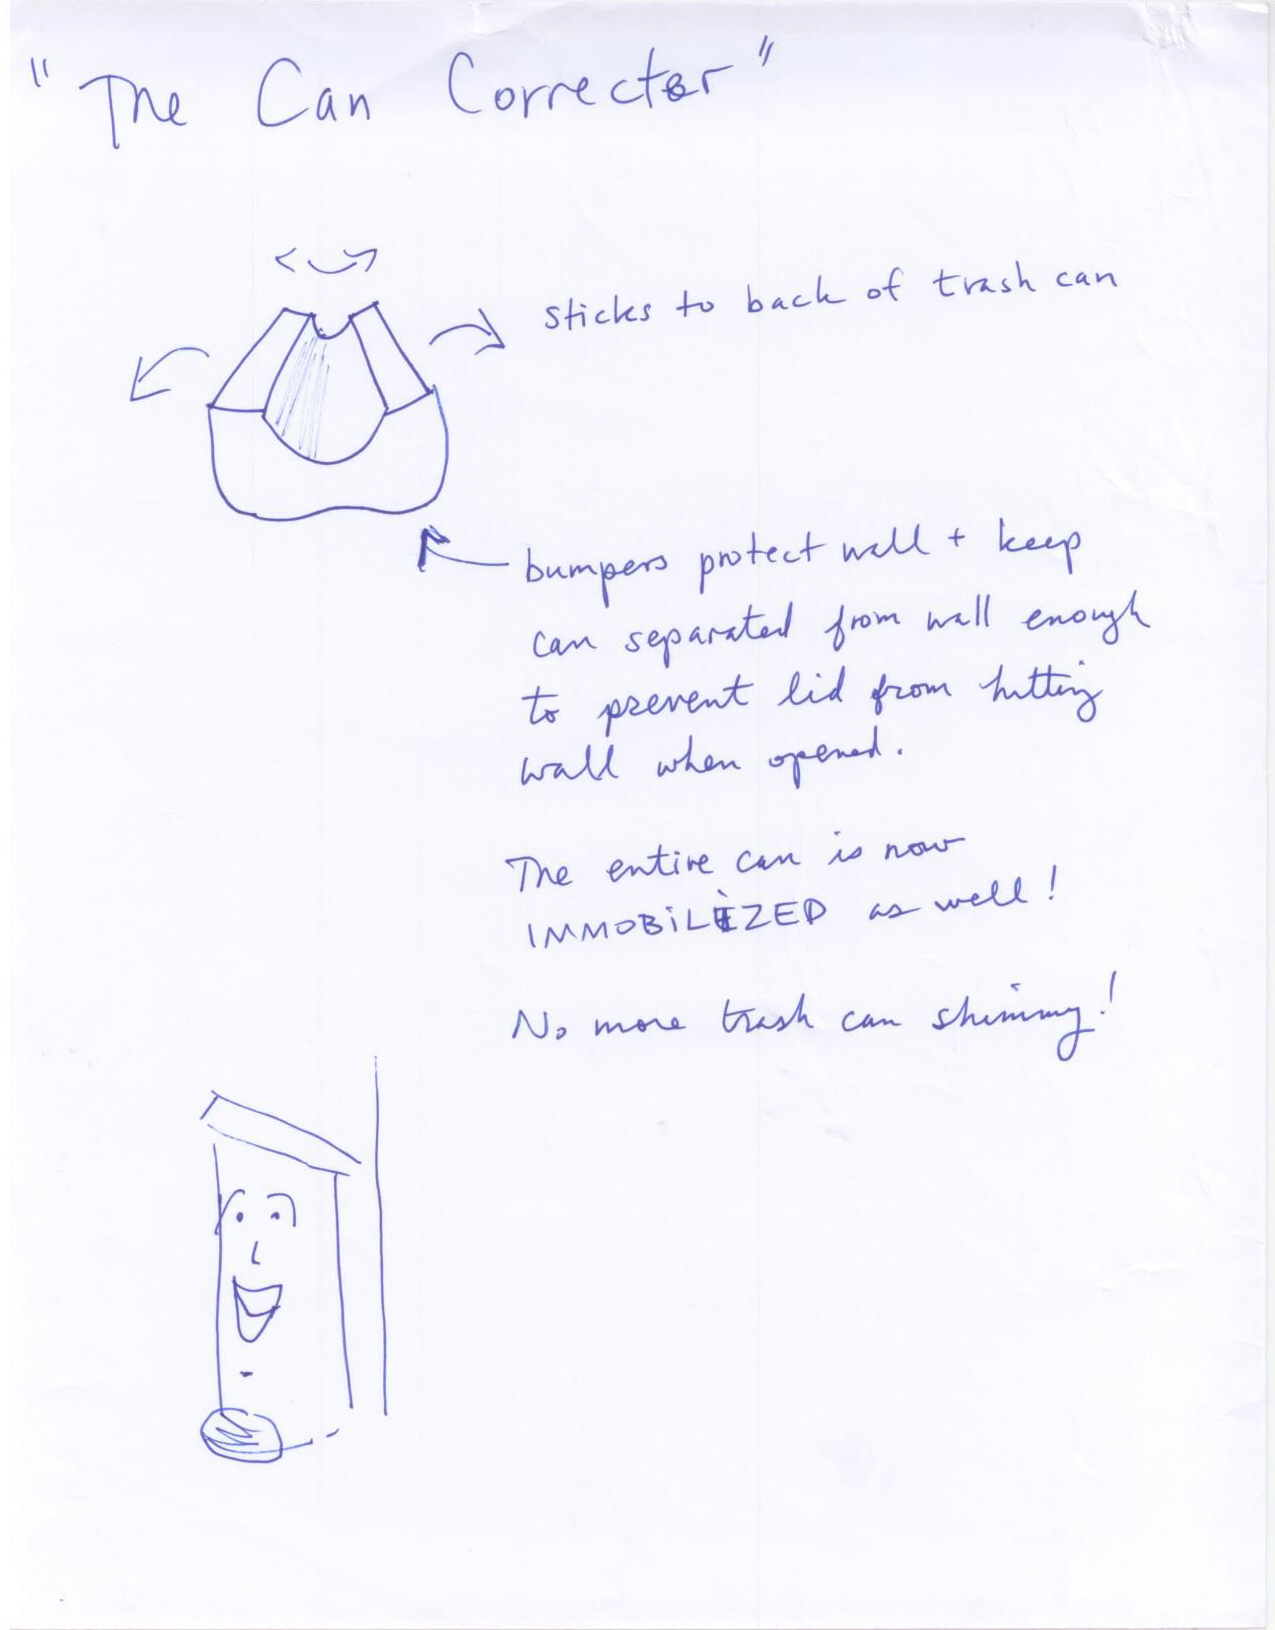 "The Can Corrector"
sticks to back of trash can
bumpers protect wall + keep
can separated from wall enough
to prevent lid from hitting
wall when opened.
The entire can is now
IMMOBILIZED as well!
No more trash can shimmy!